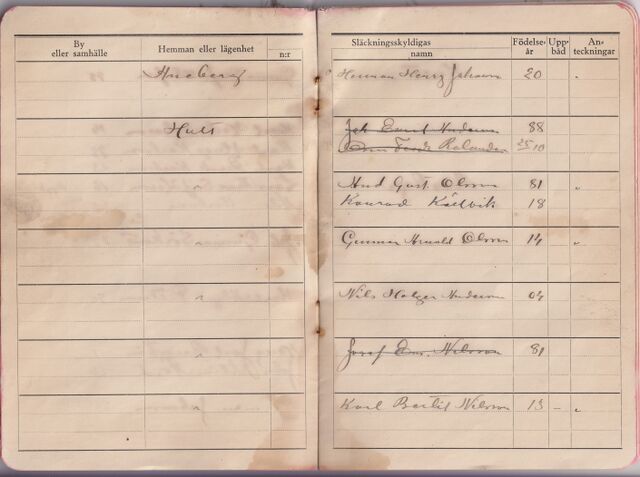 By
eller samhälle
Hemman eller lägenhet
n:r
Aneberg
Hult
"
"
"
"
Släckningsskyldigas
namn
Födelse-
år
Upp-
båd
An-
teckningar
Herman Henry Johansson 20 "
Joh Ernst Anderson 88
Rolander 10
And Gust. Olsson 81 "
Konrad Källvik 18
Gunnar Arnold Olsson 14 "
Nils Holger Anderson 04
Josef Em. Nilsson 81
Karl Bertil Nilsson 13 – "